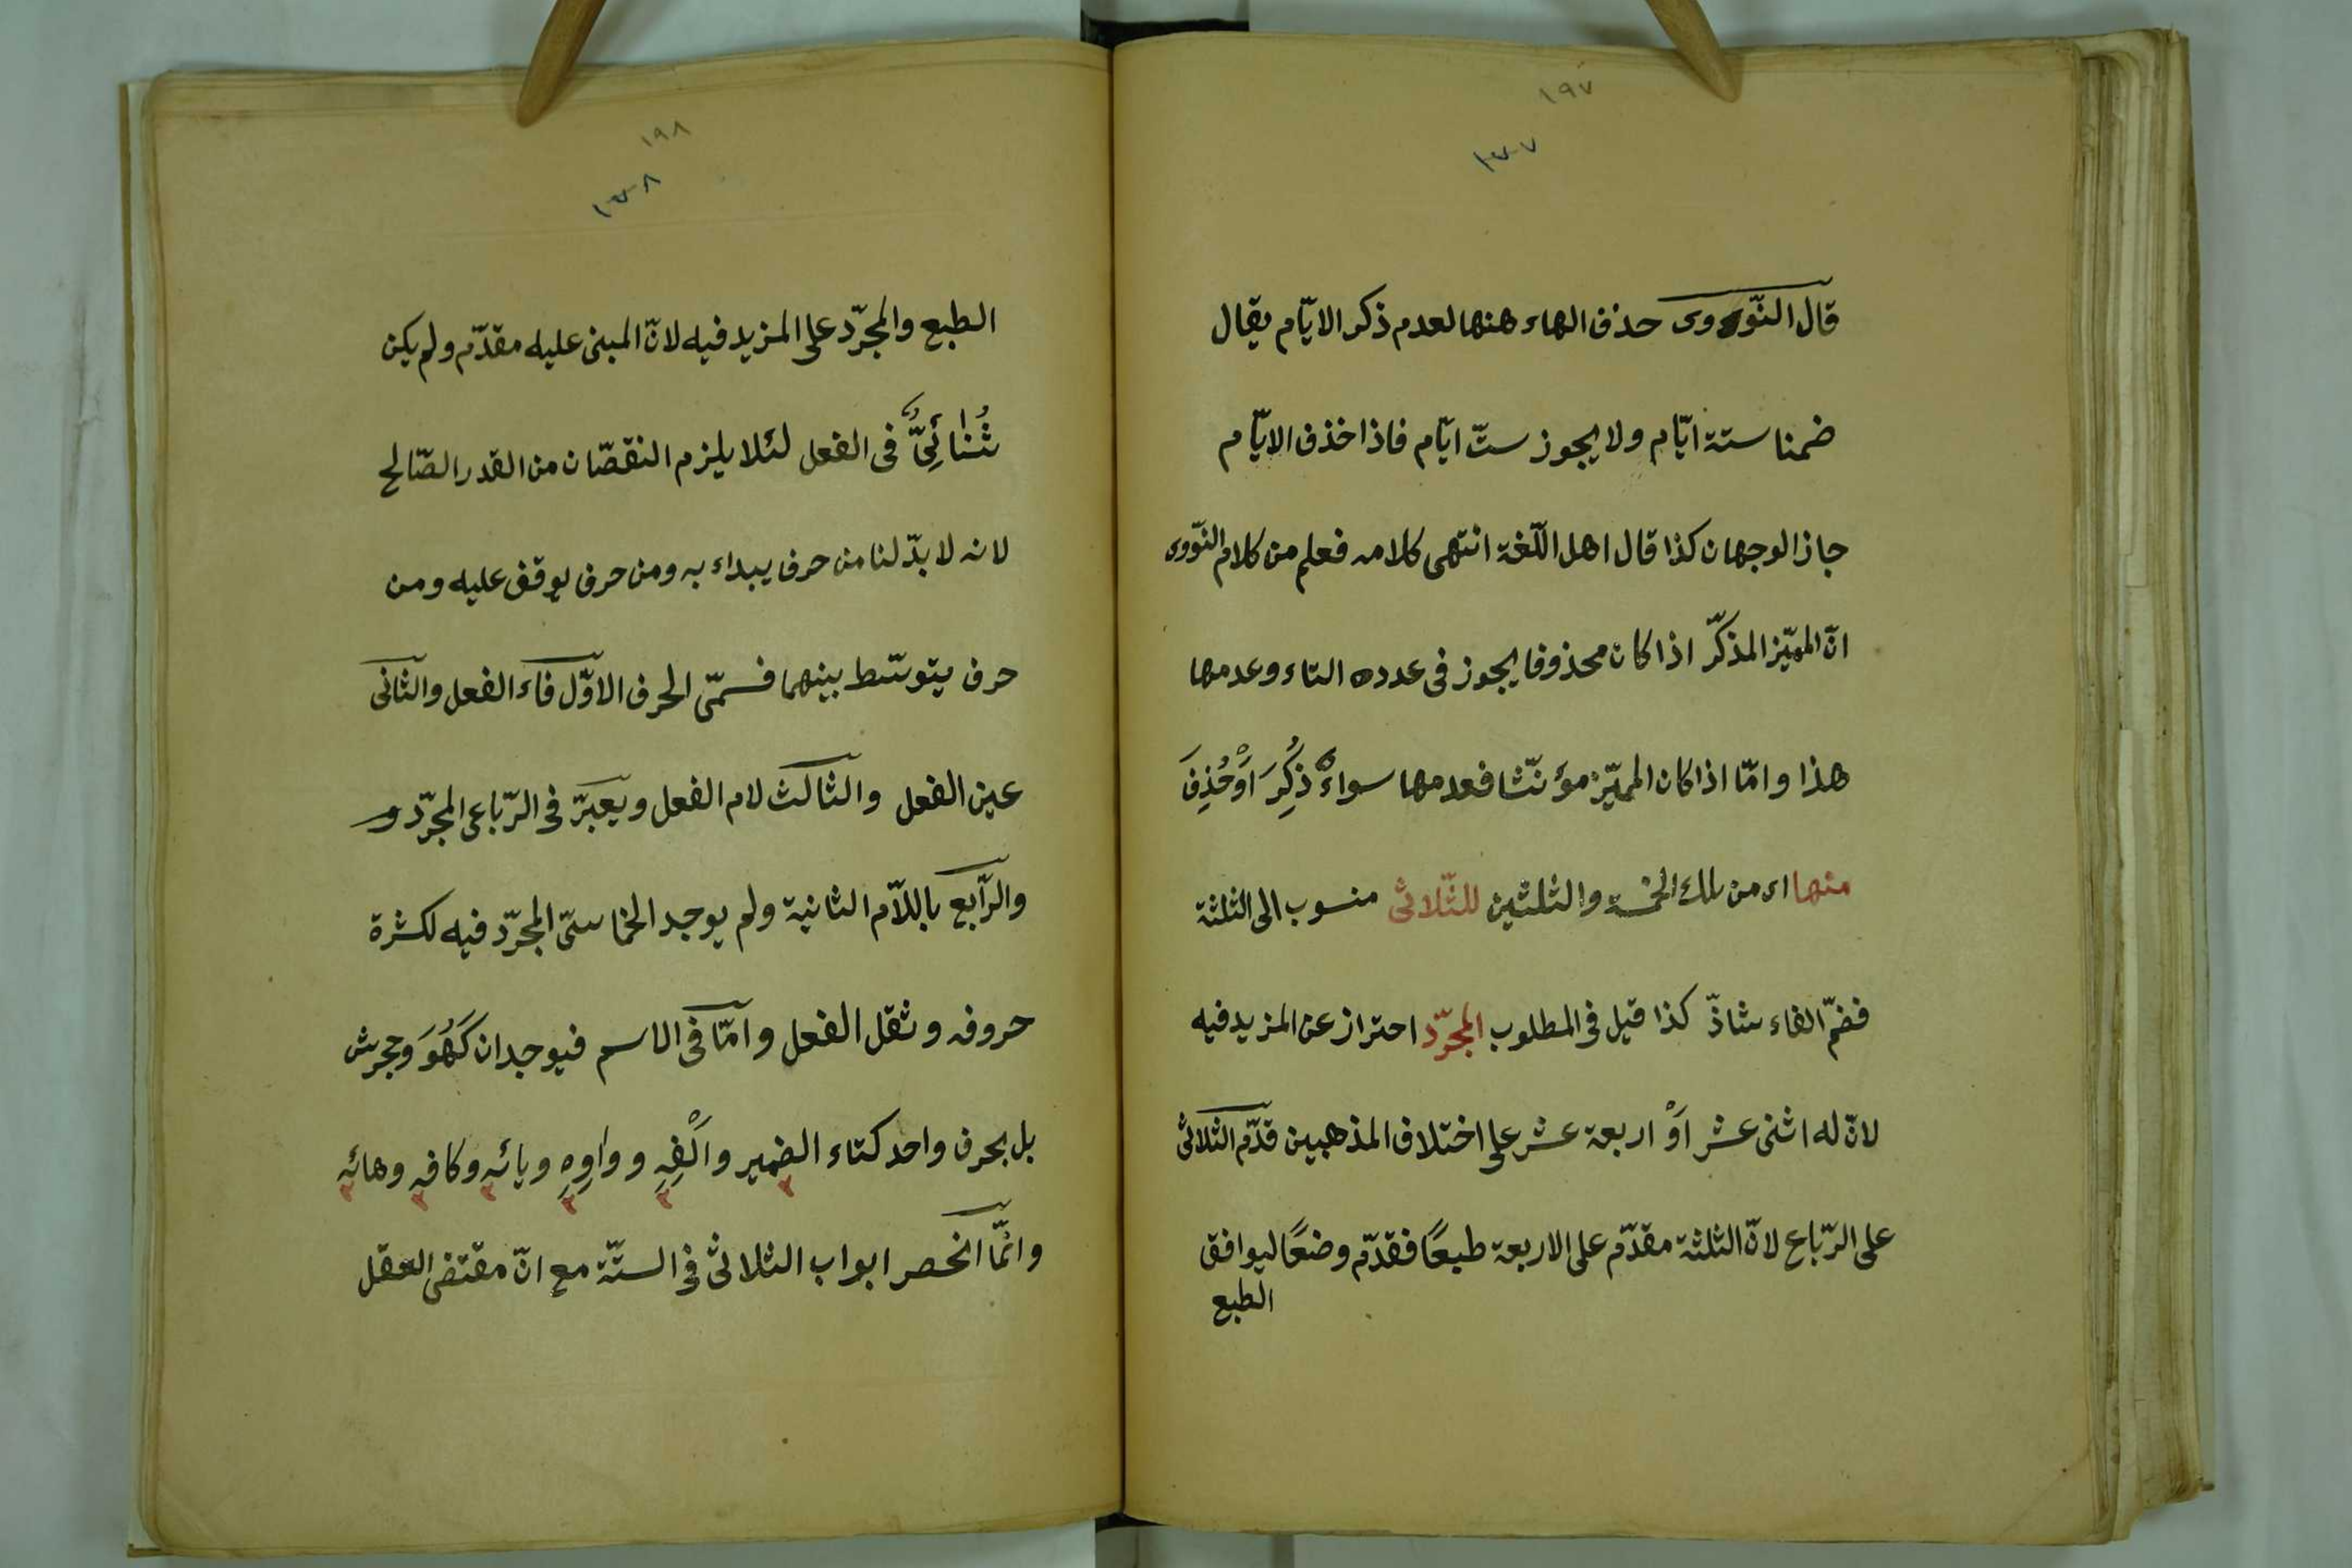 ١٩٧
١٣٧
قال النّووى حذف الهاء ههنا لعدم ذكر الايّام يقال
ضمنا ستة ايّام ولا يجوز ستّ ايّام فاذا خذف الايّام
جاز الوجهان كذا قال اهل اللّغة انتهى كلامه فعلم من كلام النّووى
انّ المميّز المذكّر اذا كان محذوفا يجوز فى عدده التاء وعدمها
هذا وامّا اذا كان المميّز مؤنّثا فعدمها سواءٌ ذُكِرَ اَوْ حُذِفَ
منها اى من تلك الخمسة والثلثين للثّلاثى منسوب الى الثلثة
فضمّ الفاء شاذّ كذا قيل فى المطلوب المجرّد احتراز عن المزيد فيه
لانّ له اثنى عشر اَوْ اربعة عشر على اختلاف المذهبين قدّم الثلاثى
على الرّباع لانّ الثلثة مقدّم على الاربعة طبعًا فقدّم وضعًا ليوافق
الطبع
١٩٨
١٣٨
الطبع والمجرّد على المزيد فيه لانّ المبنى عليه مقدّم ولم يكن
ثُنائِىٌّ فى الفعل لئلا يلزم النقصّان من القدر الصّالح
لانه لا بدّ لنا من حرف يبداء به ومن حرف يوقف عليه ومن
حرف يتوسّط بينهما فسمّى الحرف الاوّل فاء الفعل والثّانى
عين الفعل والثالث لام الفعل ويعبّر فى الرّباعى المجرّد و
والرّابع باللاّم الثانية ولم يوجد الخماسىّ المجرّد فيه لكثرة
حروفه وثقل الفعل وامّا فى الاسم فيوجدان كَهُوَ وجحرش
بل بحرف واحد كتاء الضمير واَلْفِهِ وواوِهِ ويائهِ وكافهِ وهائهِ
وانّما انحصر ابواب الثلاثى فى الستّة مع انّ مقتضى العقل